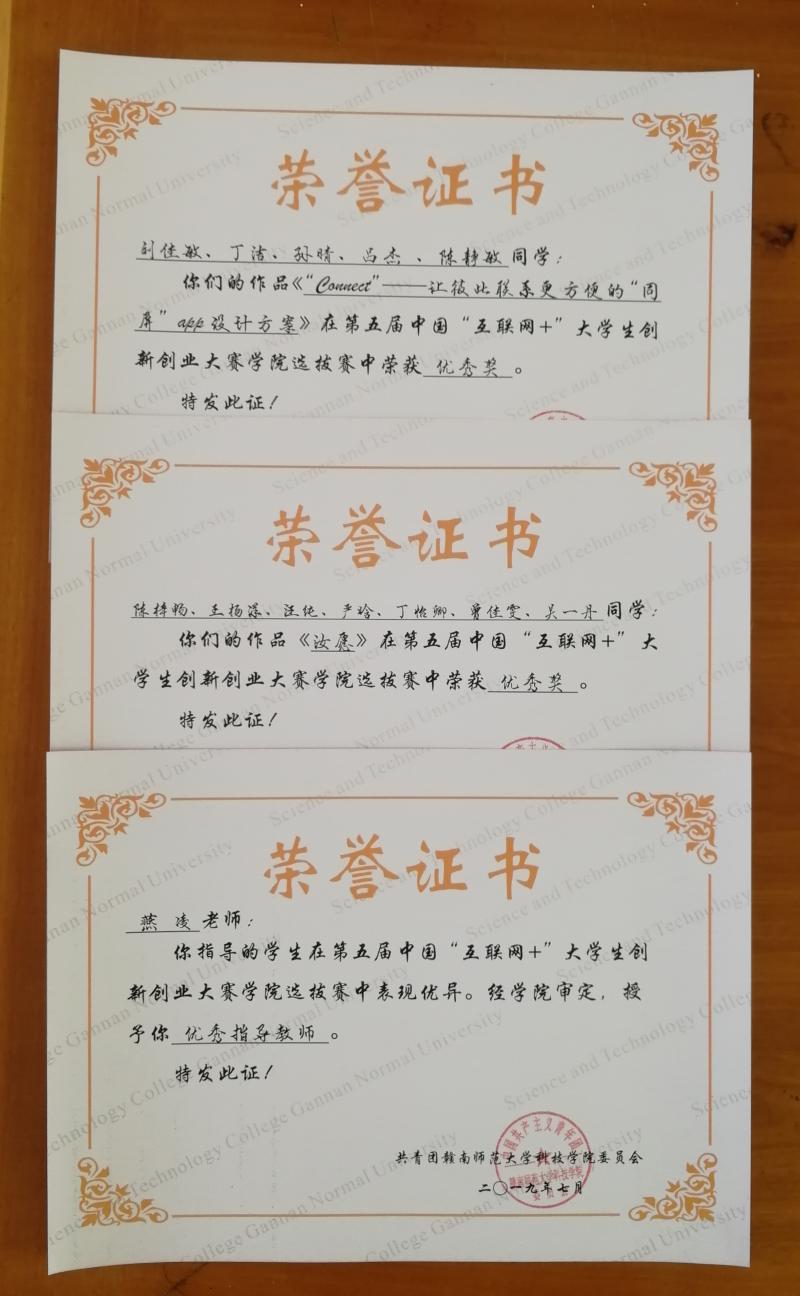 荣誉证书
刘佳敏、丁洁、孙晴、吕杰、陈静敏同学：
你们的作品《“Connect”——让彼此联系更方便的“同
屏”app设计方案》在第五届中国“互联网+”大学生创
新创业大赛学院选拔赛中荣获 优秀奖 。
特发此证！
荣誉证书
陈梓畅、王杨漾、汪纯、严玲、丁怡卿、曾佳雯、吴一丹同学：
你们的作品《汝愿》在第五届中国“互联网+”大
学生创新创业大赛学院选拔赛中荣获 优秀奖 。
特发此证！
荣誉证书
燕凌老师：
你指导的学生在第五届中国“互联网+”大学生创
新创业大赛学院选拔赛中表现优异。经学院审定，授
予你 优秀指导教师 。
特发此证！
共青团赣南师范大学科技学院委员会
二〇一九年七月
Science and Technology College Gannan Normal University